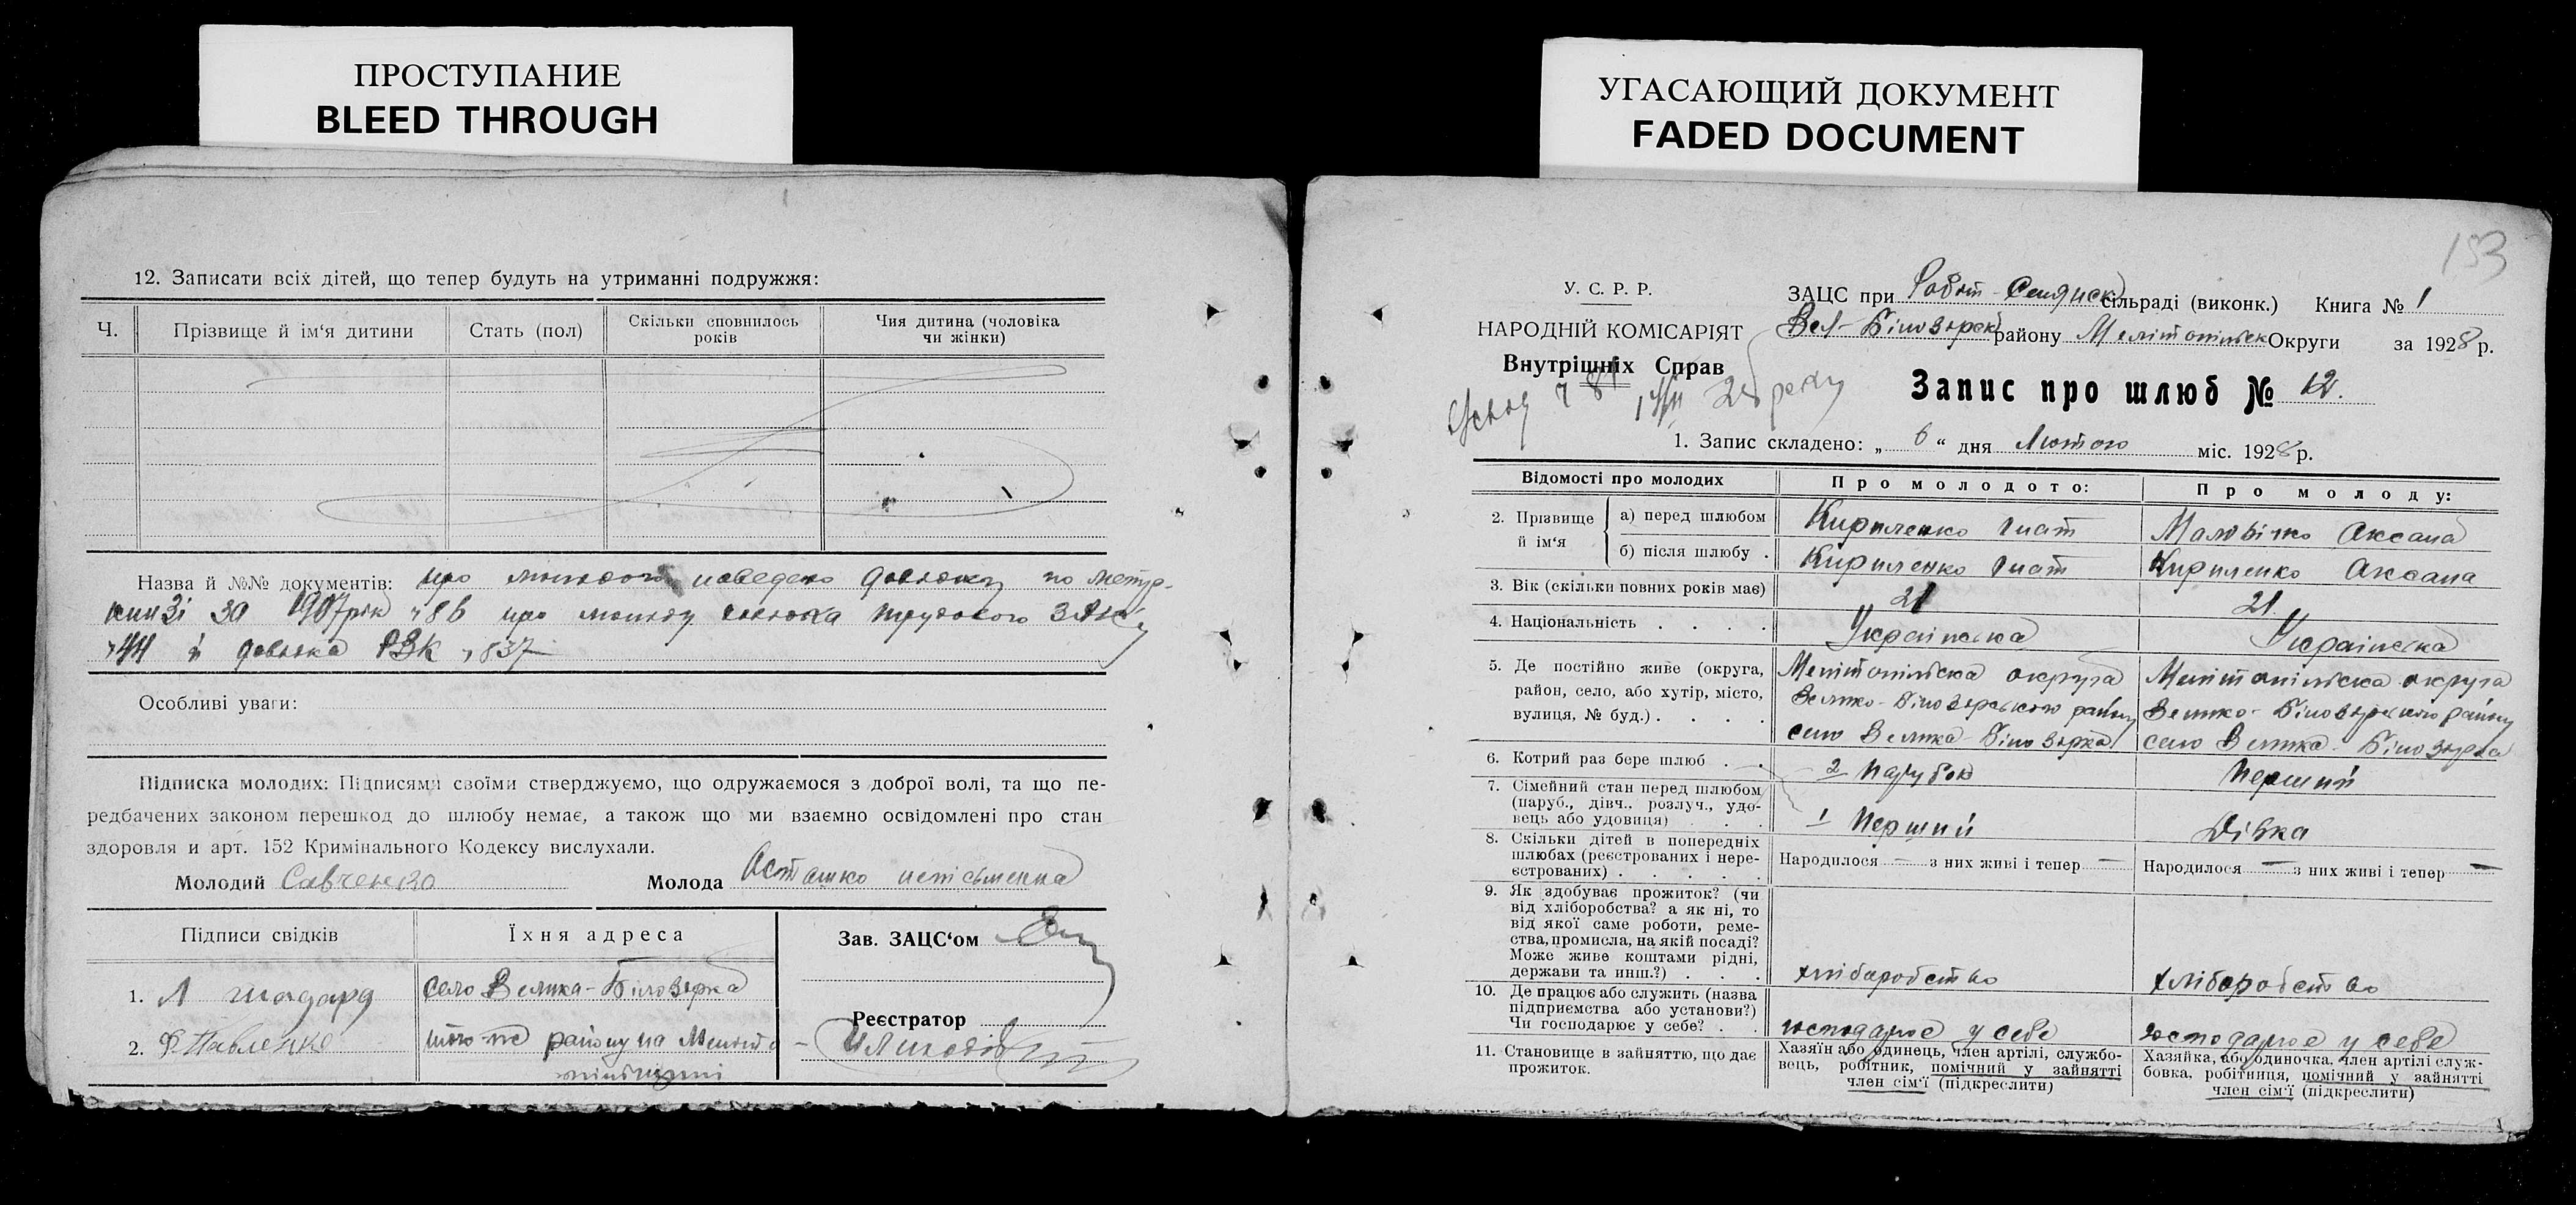 ПРОСТУПАНИЕ
BLEED THROUGH
12. Записати всіх дітей, що тепер будуть на утриманні подружжя:
Ч.
Прізвище й ім‘я дитини
Стать (пол)
Скільки сповнилось
років
Чия дитина (чоловіка
чи жінки)
Назва й №№ документів: про молодого наведено довідку по метр.
книзі за 1907 рік 86 про молоду
44 й довідка РВК 837
Особливі уваги:
Підписка молодих: Підписями своїми стверджуємо, що одружаємося з доброї волі, та що пе-
редбачених законом перешкод до шлюбу немає, а також що ми взаємно освідомлені про стан
здоровля и арт. 152 Кримінального Кодексу вислухали.
Молодий Савченко
Молода Осташко неписьменна
Підписи свідків
Їхня адреса
Зав. ЗАЦС‘ом
1. Л
село Велика-Білозерка
Реєстратор
2. Ф. Павленко
того-же району на Мелито-
УГАСАЮЩИЙ ДОКУМЕНТ
FADED DOCUMENT
153
У. С. Р. Р.
НАРОДНІЙ КОМІСАРІЯТ
Внутрішніх Справ
ЗАЦС при Робот-Селянск сільраді (виконк.) Книга № 1
Вел-Білозерск району Мелітопільск Округи за 1928 р.
Запис про шлюб № 12.
28 року
1. Запис складено: „ 6 “ дня Лютого міс. 1928 р.
Відомості про молодих
Про молодого:
Про молоду:
2. Прізвище
й ім‘я
а) перед шлюбом
Кириленко Гнат
Маловічко Аксана
б) після шлюбу .
Кириленко Гнат
Кириленко Аксана
3. Вік (скільки повних років має)
21
21.
4. Національність . . . .
Українська
Українська
5. Де постійно живе (округа,
район, село, або хутір, місто,
вулиця, № буд.) . . . .
Мелітопільска округа
Велико-Білозерського району
село Велика-Білозерка
Мелітопільска округа
Велико-Білозерського району
село Велика-Білозерка
6. Котрий раз бере шлюб . .
2 парубок
Перший
7. Сімейний стан перед шлюбом
(паруб., дівч., розлуч., удо-
вець або удовиця) . . .
1 Перший
Дівка
8. Скільки дітей в попередніх
шлюбах (реєстрованих і нере-
єстрованих) . . . . .
Народилося — з них живі і тепер —
Народилося — з них живі і тепер —
9. Як здобуває прожиток? (чи
від хліборобства? а як ні, то
від якої саме роботи, реме-
ства, промисла, на якій посаді?
Може живе коштами рідні,
держави та инш.?) . . .
хліборобство
хліборобство
10. Де працює або служить (назва
підприємства або установи?)
Чи господарює у себе? . .
господарює у себе
господарює у себе
11. Становище в зайняттю, що дає
прожиток.
Хазяїн або одинець, член артілі, службо-
вець, робітник, помічний у зайнятті
член сім‘ї (підкреслити)
Хазяйка, або одиночка, член артілі служ-
бовка, робітниця, помічний у зайнятті
член сім‘ї (підкреслити)